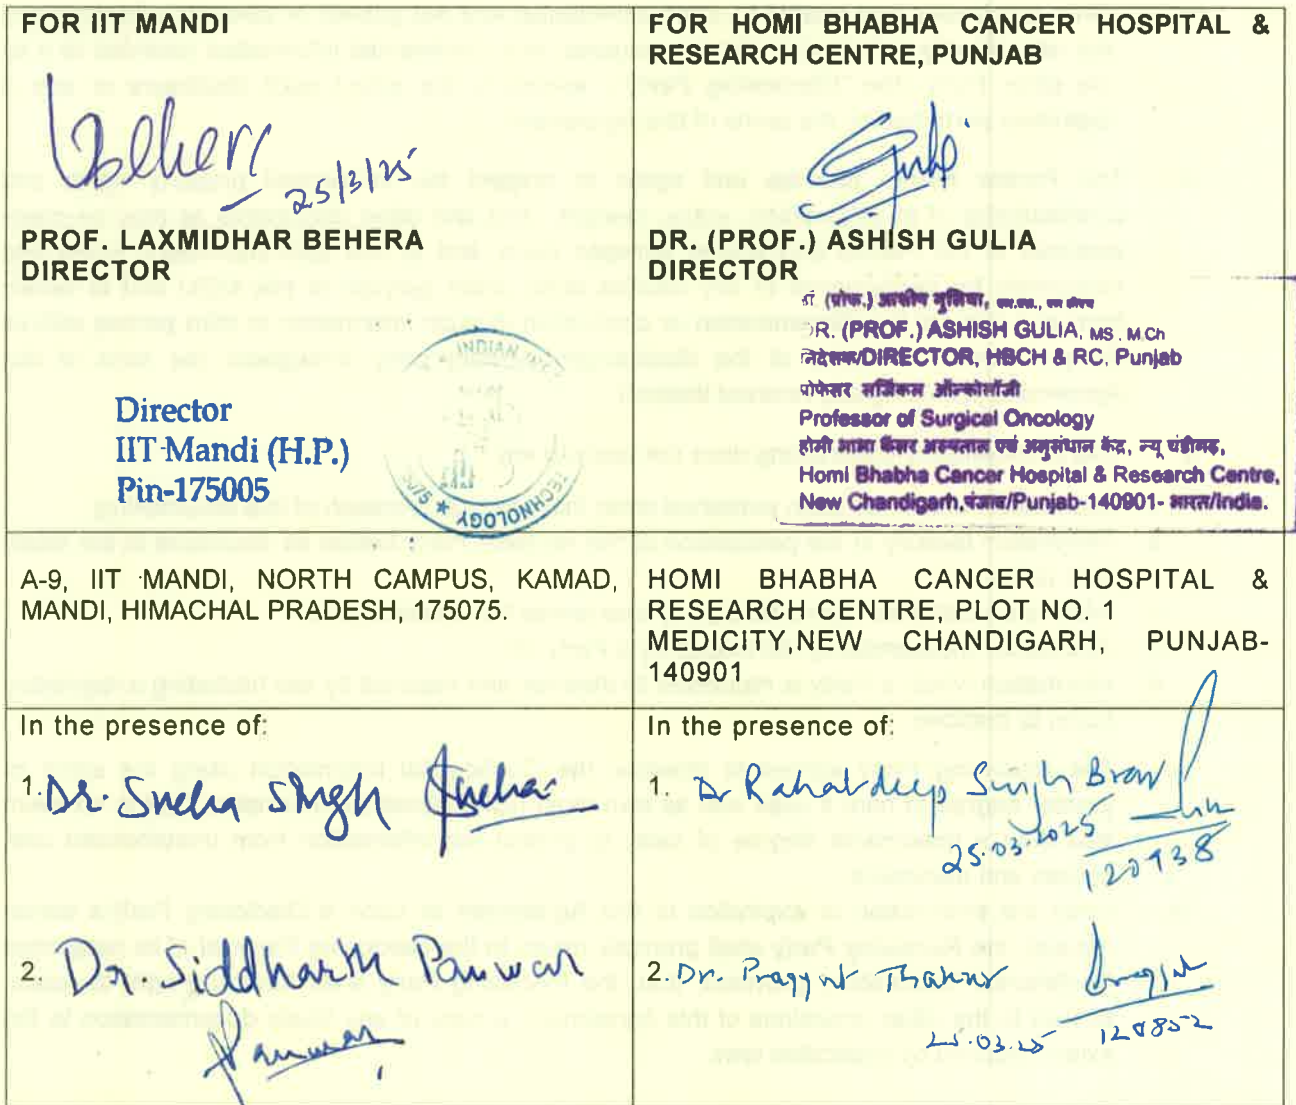 FOR IIT MANDI
Behera
25/3/25
PROF. LAXMIDHAR BEHERA
DIRECTOR
Director
IIT Mandi (H.P.)
Pin-175005
INDIAN
TECHNOLOGY
FOR HOMI BHABHA CANCER HOSPITAL &
RESEARCH CENTRE, PUNJAB
DR. (PROF.) ASHISH GULIA
DIRECTOR
(प्रोफ.) आशीष गुलिया,
DR. (PROF.) ASHISH GULIA, MS. M.Ch
निदेशक/DIRECTOR, HBCH & RC, Punjab
प्रोफेसर सर्जिकल ऑन्कोलॉजी
Professor of Surgical Oncology
होमी भाभा कैंसर अस्पताल एवं अनुसंधान केंद्र, न्यू चंडीगढ़,
Homi Bhabha Cancer Hospital & Research Centre,
New Chandigarh, पंजाब/Punjab-140901- भारत/India.
A-9, IIT MANDI, NORTH CAMPUS, KAMAD,
MANDI, HIMACHAL PRADESH, 175075.
HOMI BHABHA CANCER HOSPITAL &
RESEARCH CENTRE, PLOT NO. 1
MEDICITY,NEW CHANDIGARH, PUNJAB-
140901
In the presence of:
1. Dr. Sneha Singh Sneha
2. Dr. Siddharth Panwar
Panwar
In the presence of:
1. Dr Rahatdeep Singh Brar
25.03.2025
120938
2. Dr. Pragyat Thakur Pragyat
25.03.25 120852